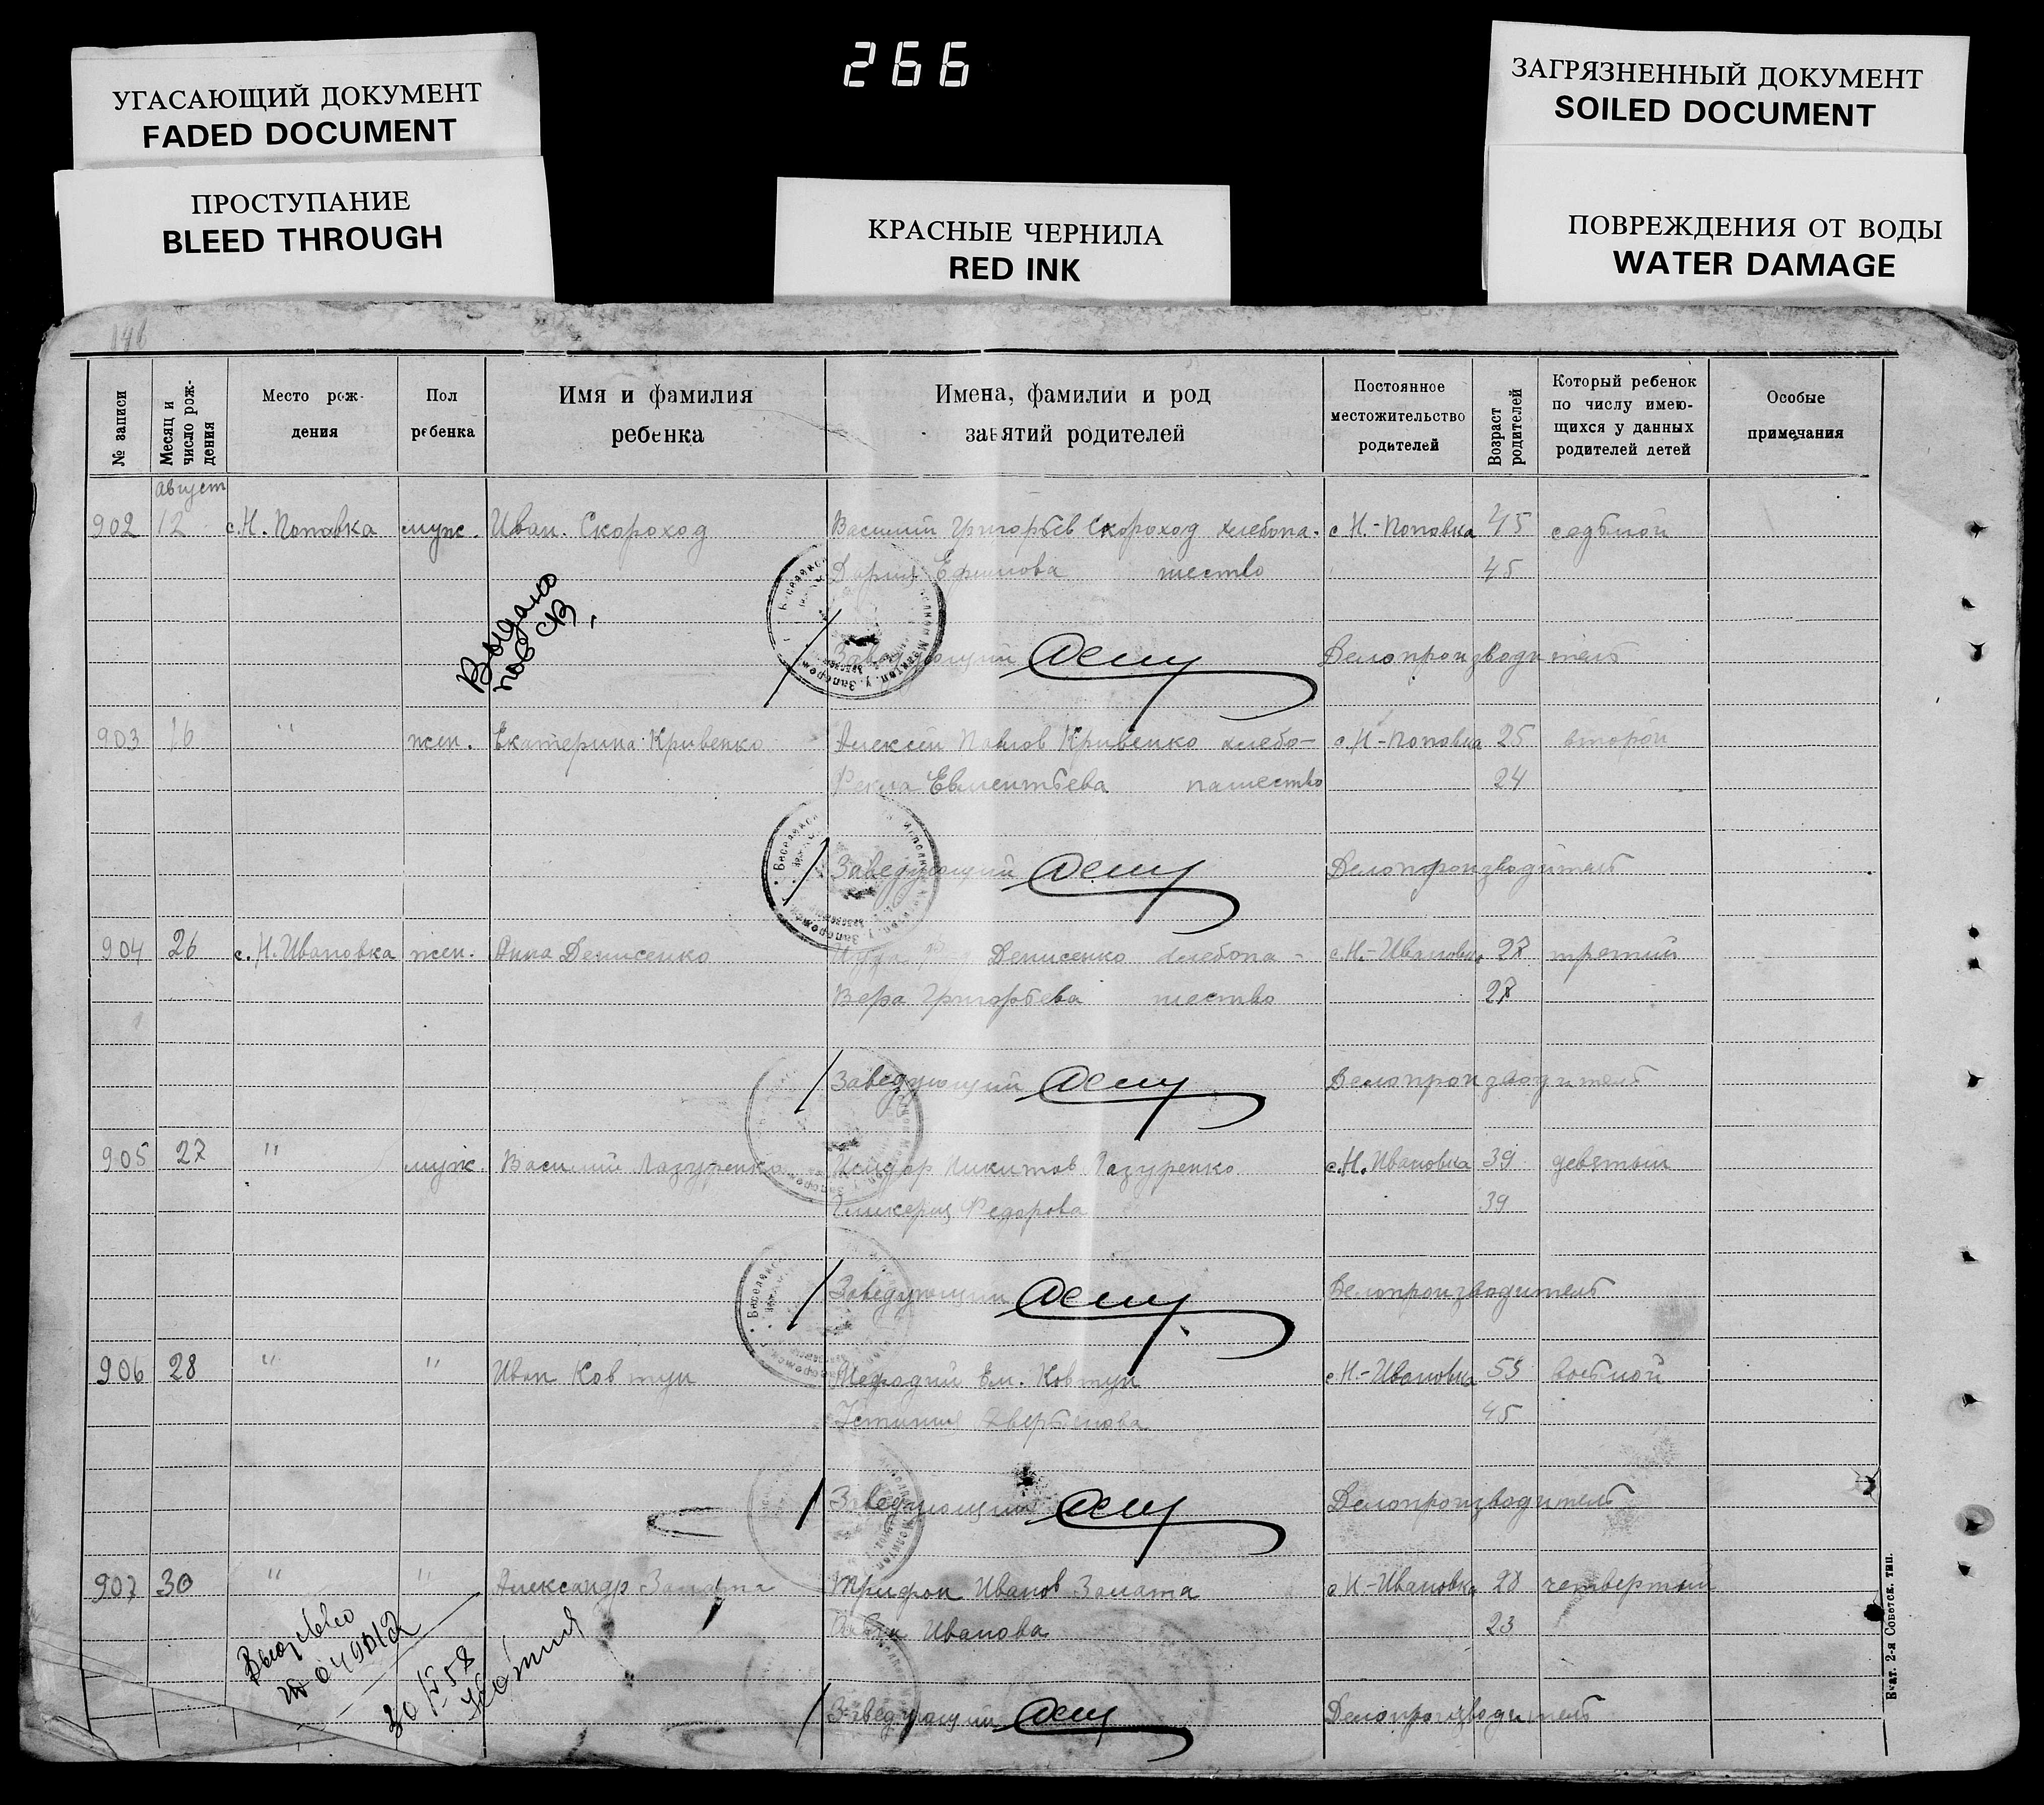 266
УГАСАЮЩИЙ ДОКУМЕНТ
FADED DOCUMENT
ПРОСТУПАНИЕ
BLEED THROUGH
КРАСНЫЕ ЧЕРНИЛА
RED INK
ЗАГРЯЗНЕННЫЙ ДОКУМЕНТ
SOILED DOCUMENT
ПОВРЕЖДЕНИЯ ОТ ВОДЫ
WATER DAMAGE
№ записи
Месяц и число рож-дения
Место рож-
дения
Пол
ребенка
Имя и фамилия
ребенка
Имена, фамилии и род
занятий родителей
Постоянное
местожительство
родителей
Возраст родителей
Который ребенок
по числу имею-
щихся у данных
родителей детей
Особые
примечания
август
902 12 с.Н. Поповка муж. Иван. Скороход Василий Григорьев Скороход хлебопа- с Н.-Поповка 45 седьмой
Дария Ефимова шество 45
Выдано
пов св,
Заведующий Делопроизводитель
903 16 " жен. Екатерина Кривенко Алексей Павлов Кривенко хлебо- с Н-Поповка 25 второй
пашество 24
Заведующий Делопроизводитель
904 26 с. Н. Ивановка жен. Анна Денисенко Денисенко хлебопа- с Н.-Ивановка 27 третий
Вера Григорьева шество
Заведующий Делопроизводитель
905 27 " муж Василий Лазуренко Исидор Никитов Лазуренко с.Н. Ивановка 39 девятый
Гликерия Федорова 39
Заведующий Делопроизводитель
906 28 " " Иван Ковтун Мефодий Ем. Ковтун с Н.-Ивановка восьмой
45
Заведующий Делопроизводитель
907 30 " " Александр Трифон Иванов с Н-Ивановка 28 четвертый
Иванова 23
Заведующий Делопроизводитель
Вкат. 2-я Советск. тип.